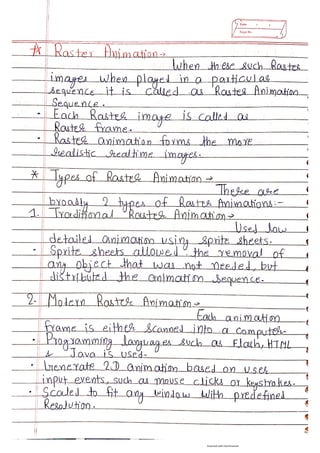 Date
Page No.
* Raster Animation →
When these such Raster
images when played in a particular
sequence it is called as Raster Animation
Sequence.
· Each Raster image is called as
Raster frame.
· Raster animation forms the more
realistic realtime images.
* Types of Raster Animation →
There are
broadly 2 types of Raster Animations:-
1. Traditional Raster Animation →
Used low
detailed animation using sprite sheets.
· Sprite sheets allowed the removal of
any object that was not needed, but
distributed the animation sequence.
2. Modern Raster Animation →
Each animation
frame is either scanned into a computer.
· Programming languages such as Flash, HTML
& Java is used.
· Generate 2D animation based on user
input events, such as mouse clicks or keystrokes.
· Scaled to fit any window with predefined
Resolution.
Scanned with CamScanner